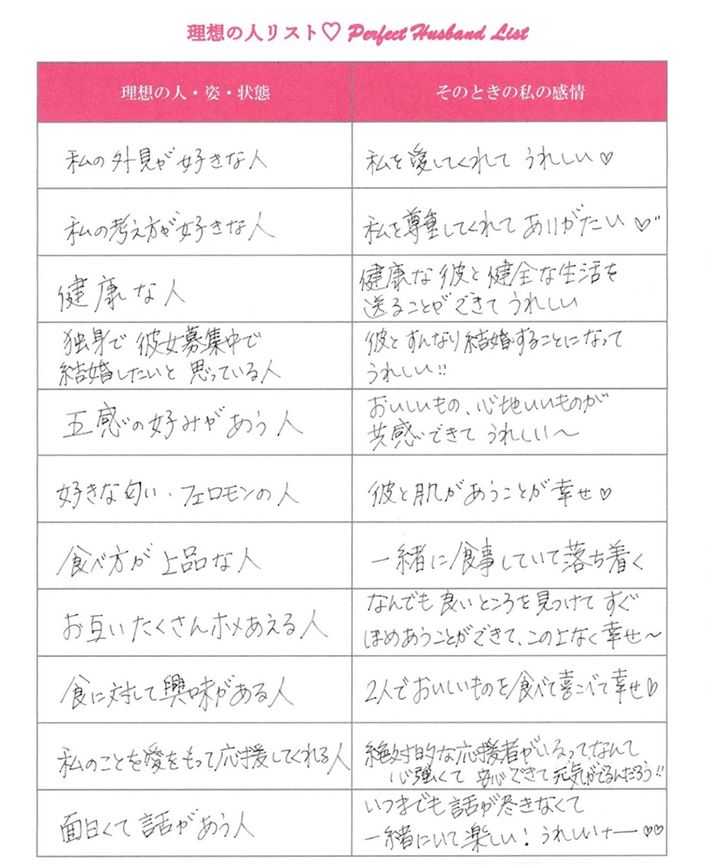 理想の人リスト♡ Perfect Husband List
理想の人・姿・状態
そのときの私の感情
私の外見が好きな人
私を愛してくれて うれしい♡
私の考え方が好きな人
私を尊重してくれて ありがたい♡"
健康な人
健康な彼と健全な生活を
送ることができて うれしい
独身で 彼女募集中で
結婚したいと 思っている人
彼と すんなり結婚することになって
うれしい!!
五感の好みがあう人
おいしいもの、心地いいものが
共感できて うれしい〜
好きな匂い・フェロモンの人
彼と肌があうことが 幸せ♡
食べ方が 上品な人
一緒に食事していて落ち着く
お互いたくさんホメあえる人
なんでも 良いところを見つけて すぐ
ほめあうことができて、この上なく 幸せ〜
食に対して興味がある人
2人でおいしいものを食べて喜こべて幸せ♡
私のことを愛をもって応援してくれる人
絶対的な応援者がいるってなんて
心強くて 安心できて 元気がでるんだろう!!
面白くて 話があう人
いつまでも 話が尽きなくて
一緒にいて 楽しい! うれしいナー♡♡